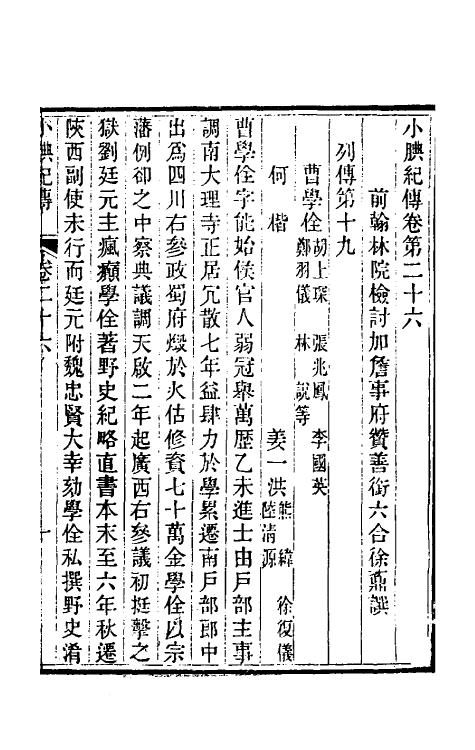 小腆紀傳卷第二十六
前翰林院檢討加詹事府贊善銜六合徐鼒譔
列傳第十九
曹學佺 胡上琛 張兆鳳 李國英
鄭羽儀 林說等
何楷 姜一洪 熊緯 徐復儀
陸清源
曹學佺字能始侯官人弱冠舉萬歷乙未進士由戶部主事
調南大理寺正居冗散七年益肆力於學累遷南戶部郎中
出爲四川右參政蜀府燬於火估修資七十萬金學佺以宗
藩例卻之中察典議調天啟二年起廣西右參議初挺擊之
獄劉廷元主瘋癲學佺著野史紀略直書本末至六年秋遷
陝西副使未行而廷元附魏忠賢大幸劾學佺私撰野史淆
小腆紀傳 卷二十六 一